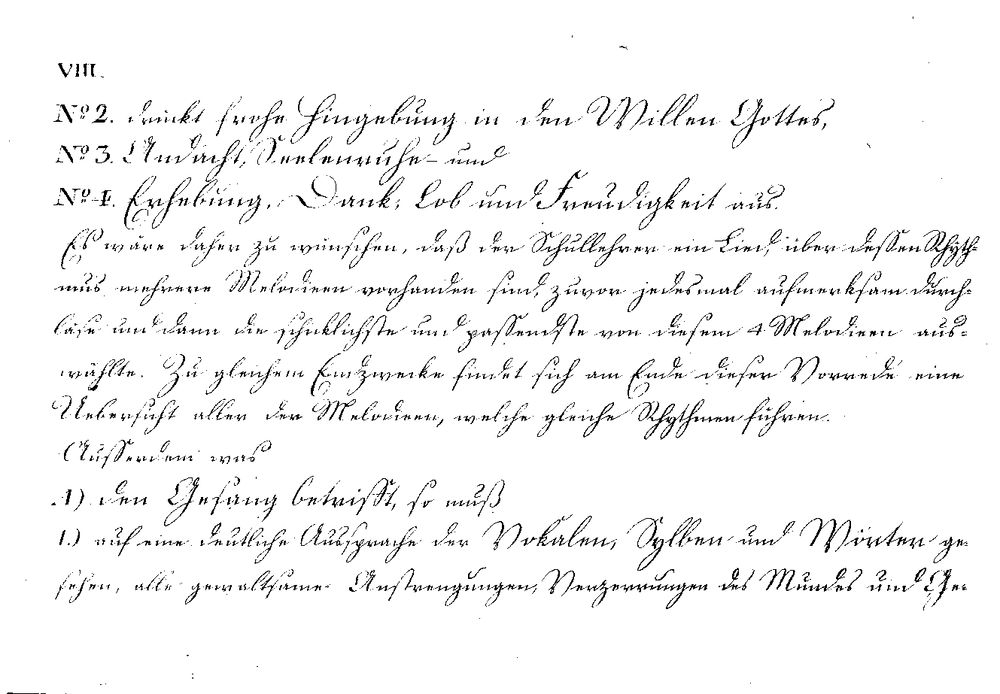 VIII.
No 2. drückt frohe Hingebung in den Willen Gottes,
No 3. Andacht, Seelenruhe und
No 4. Erhebung, Dank, Lob und Freudigkeit aus.
Es wäre daher zu wünschen, daß der Schullehrer ein Lied, über dessen Rhyth-
mus mehrere Melodieen vorhanden sind, zuvor jedesmal aufmerksam durch-
läse und dann die schicklichste und passendste von diesem 4 Melodieen aus-
wählte. Zu gleichem Endzwecke findet sich am Ende dieser Vorrede eine
Uebersicht aller der Melodieen, welche gleiche Rhythmen führen.
Ausserdem was
1) den Gesang betrifft, so muß
1.) auf eine deutliche Aussprache der Vokalen, Sylben und Wörter ge-
sehen, alle gewaltsame Anstrengungen, Verzerrungen des Mundes und Ge-